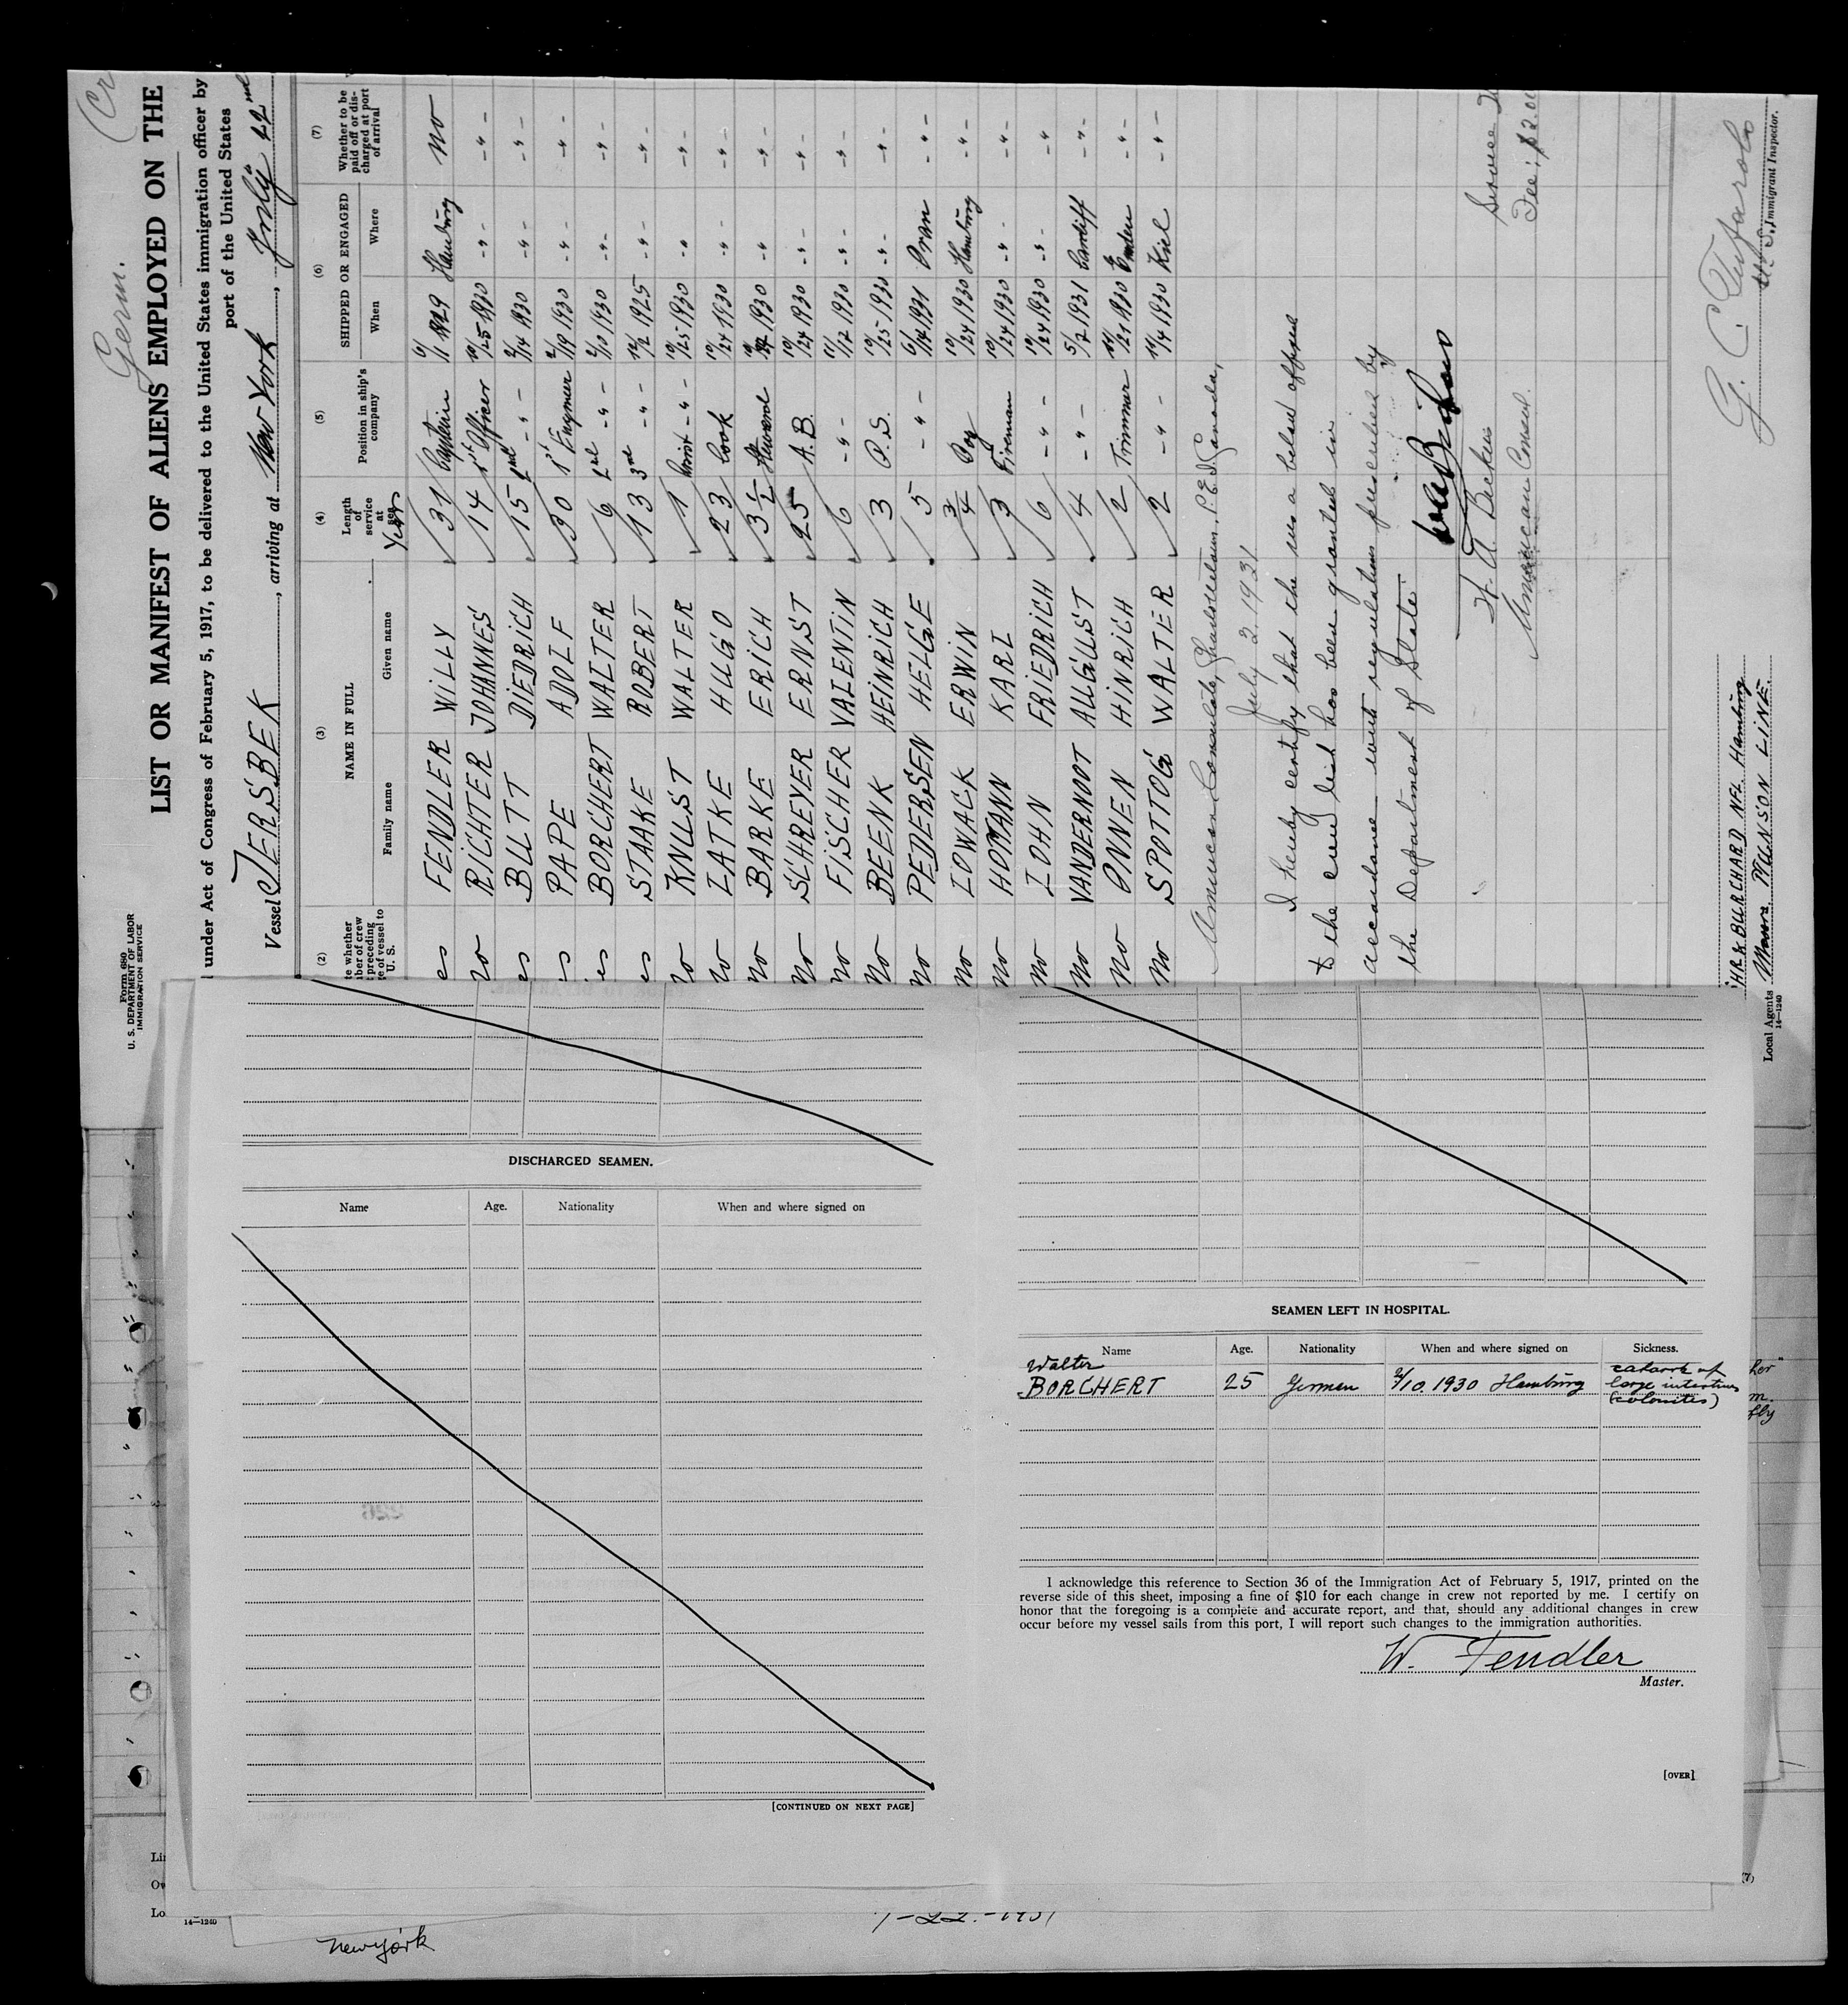 Germ.
(Cr
Form 680
U. S. DEPARTMENT OF LABOR
IMMIGRATION SERVICE
LIST OR MANIFEST OF ALIENS EMPLOYED ON THE
under Act of Congress of February 5, 1917, to be delivered to the United States immigration officer by
port of the United States
Vessel JERSBEK, arriving at New York, July 22nd
(2) (3) (4) (5) (6) (7)
NAME IN FULL
Family name Given name
Length of service at sea Years
Position in ship's company
SHIPPED OR ENGAGED
When Where
Whether to be paid off or discharged at port of arrival
es FENDLER WILLY 31 Captain 6/1 1929 Hamburg No
no RICHTER JOHANNES 14 1st Officer 10/25 1930 -"- -"-
es BUTT DIEDRICH 15 2nd -"- 2/14 1930 -"- -"-
es PAPE ADOLF 30 1st Engineer 2/19 1930 -"- -"-
es BORCHERT WALTER 6 2nd -"- 2/10 1930 -"- -"-
es STAAKE ROBERT 13 3rd -"- 12/2 1925 -"- -"-
no KNUST WALTER 1 Assist -"- 10/25 1930 -"- -"-
no LATKE HUGO 23 Cook 10/24 1930 -"- -"-
no BARKE ERICH 3 1/2 Steward 10/24 1930 -"- -"-
no SCHREYER ERNST 25 A.B. 10/24 1930 -"- -"-
no FISCHER VALENTIN 6 -"- 11/2 1930 -"- -"-
no BEENK HEINRICH 3 O.S. 10/25 1930 -"- -"-
no PEDERSEN HELGE 5 -"- 6/14 1931 Oran -"-
no LOWACK ERWIN 3/4 Boy 10/24 1930 Hamburg -"-
no HOMANN KARL 3 Fireman 10/24 1930 -"- -"-
no LOHN FRIEDRICH 6 -"- 10/24 1930 -"- -"
no VANDERNOOT AUGUST 4 -"- 5/2 1931 Cardiff -"-
no ONNEN HINRICH 2 Trimmer 11/21 1930 Emden -"-
no SPOTTOG WALTER 2 -"- 11/4 1930 Kiel -"-
American Consulate, Charlottetown, P.E.I. Canada,
July 2, 1931
I hereby certify that the visa below affixed
to the crew list has been granted in
accordance with regulations prescribed by
the Department of State.
H. A. Backus
American Consul
Service
Fee: $2.00
G. C. Tufarolo
U. S. Immigrant Inspector.
HR. & BURCHARD NFL. Hamburg
Local Agents MUNSON LINE.
14—1240
DISCHARGED SEAMEN.
Name Age. Nationality When and where signed on
[CONTINUED ON NEXT PAGE]
SEAMEN LEFT IN HOSPITAL.
Name Age. Nationality When and where signed on Sickness.
Walter
BORCHERT 25 German 2/10. 1930 Hamburg catarrh of
large intestines
(colonites)
I acknowledge this reference to Section 36 of the Immigration Act of February 5, 1917, printed on the
reverse side of this sheet, imposing a fine of $10 for each change in crew not reported by me. I certify on
honor that the foregoing is a complete and accurate report, and that, should any additional changes in crew
occur before my vessel sails from this port, I will report such changes to the immigration authorities.
W. Fendler
Master.
[OVER]
Lo
14—1240
New york
7-22-1931